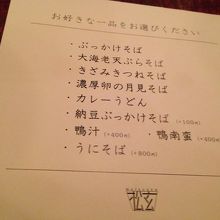 お好きな一品をお選びください
・ぶっかけそば
・大海老天ぷらそば
・きざみきつねそば
・濃厚卵の月見そば
・カレーうどん
・納豆ぶっかけそば（+100円）
・鴨汁（+400円） ・鴨南蛮（+400円）
・うにそば（+800円）
松玄